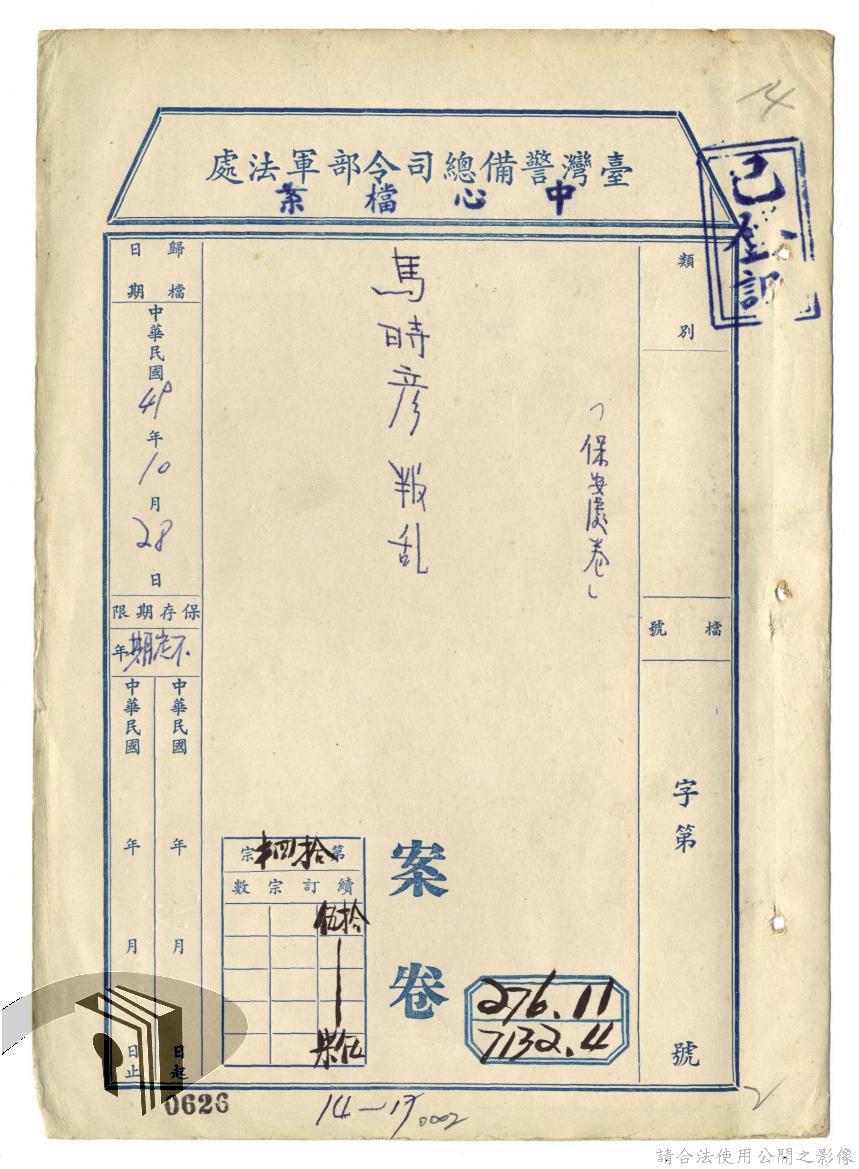 14
臺灣警備總司令部軍法處
中心檔案
已登記
類別
檔號
字第
號
(保安處卷)
馬時彥叛乱
案卷
276.11
7132.4
第拾四宗
續訂宗數
拾伍
歸檔日期
中華民國49年10月28日
保存期限
不定期年
中華民國 年 月 日起
中華民國 年 月 日止
0626
14—17
0002
2
請合法使用公開之影像